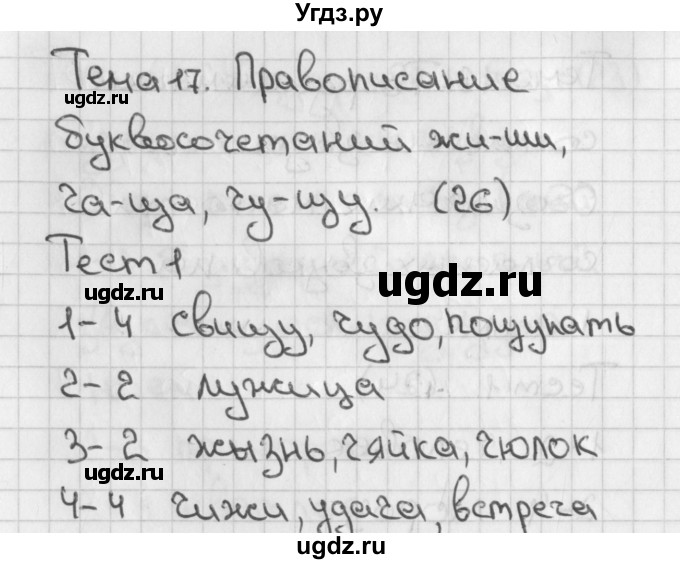 Угдз.ру
Тема 17. Правописание
ugdz.ru
буквосочетаний жи-ши,
ча-ща, чу-щу. (26)
Тест 1
ugdz.ru
ugdz.ru
1-4 свищу, чудо, пощупать
2-2 лужица
3-2 жызнь, чяйка, чюлок
ugdz.ru
4-4 чижи, удача, встреча
ugdz.ru